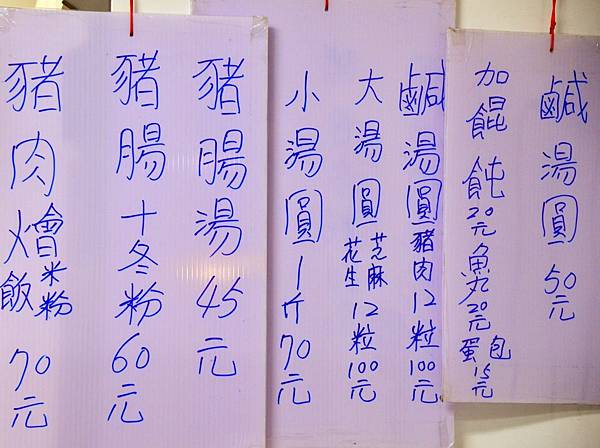 鹹湯圓50元
加餛飩20元魚丸20元蛋包15元
鹹湯圓豬肉12粒100元
大湯圓芝麻花生12粒100元
小湯圓1斤70元
豬腸湯45元
豬腸十冬粉60元
豬肉燴飯米粉70元